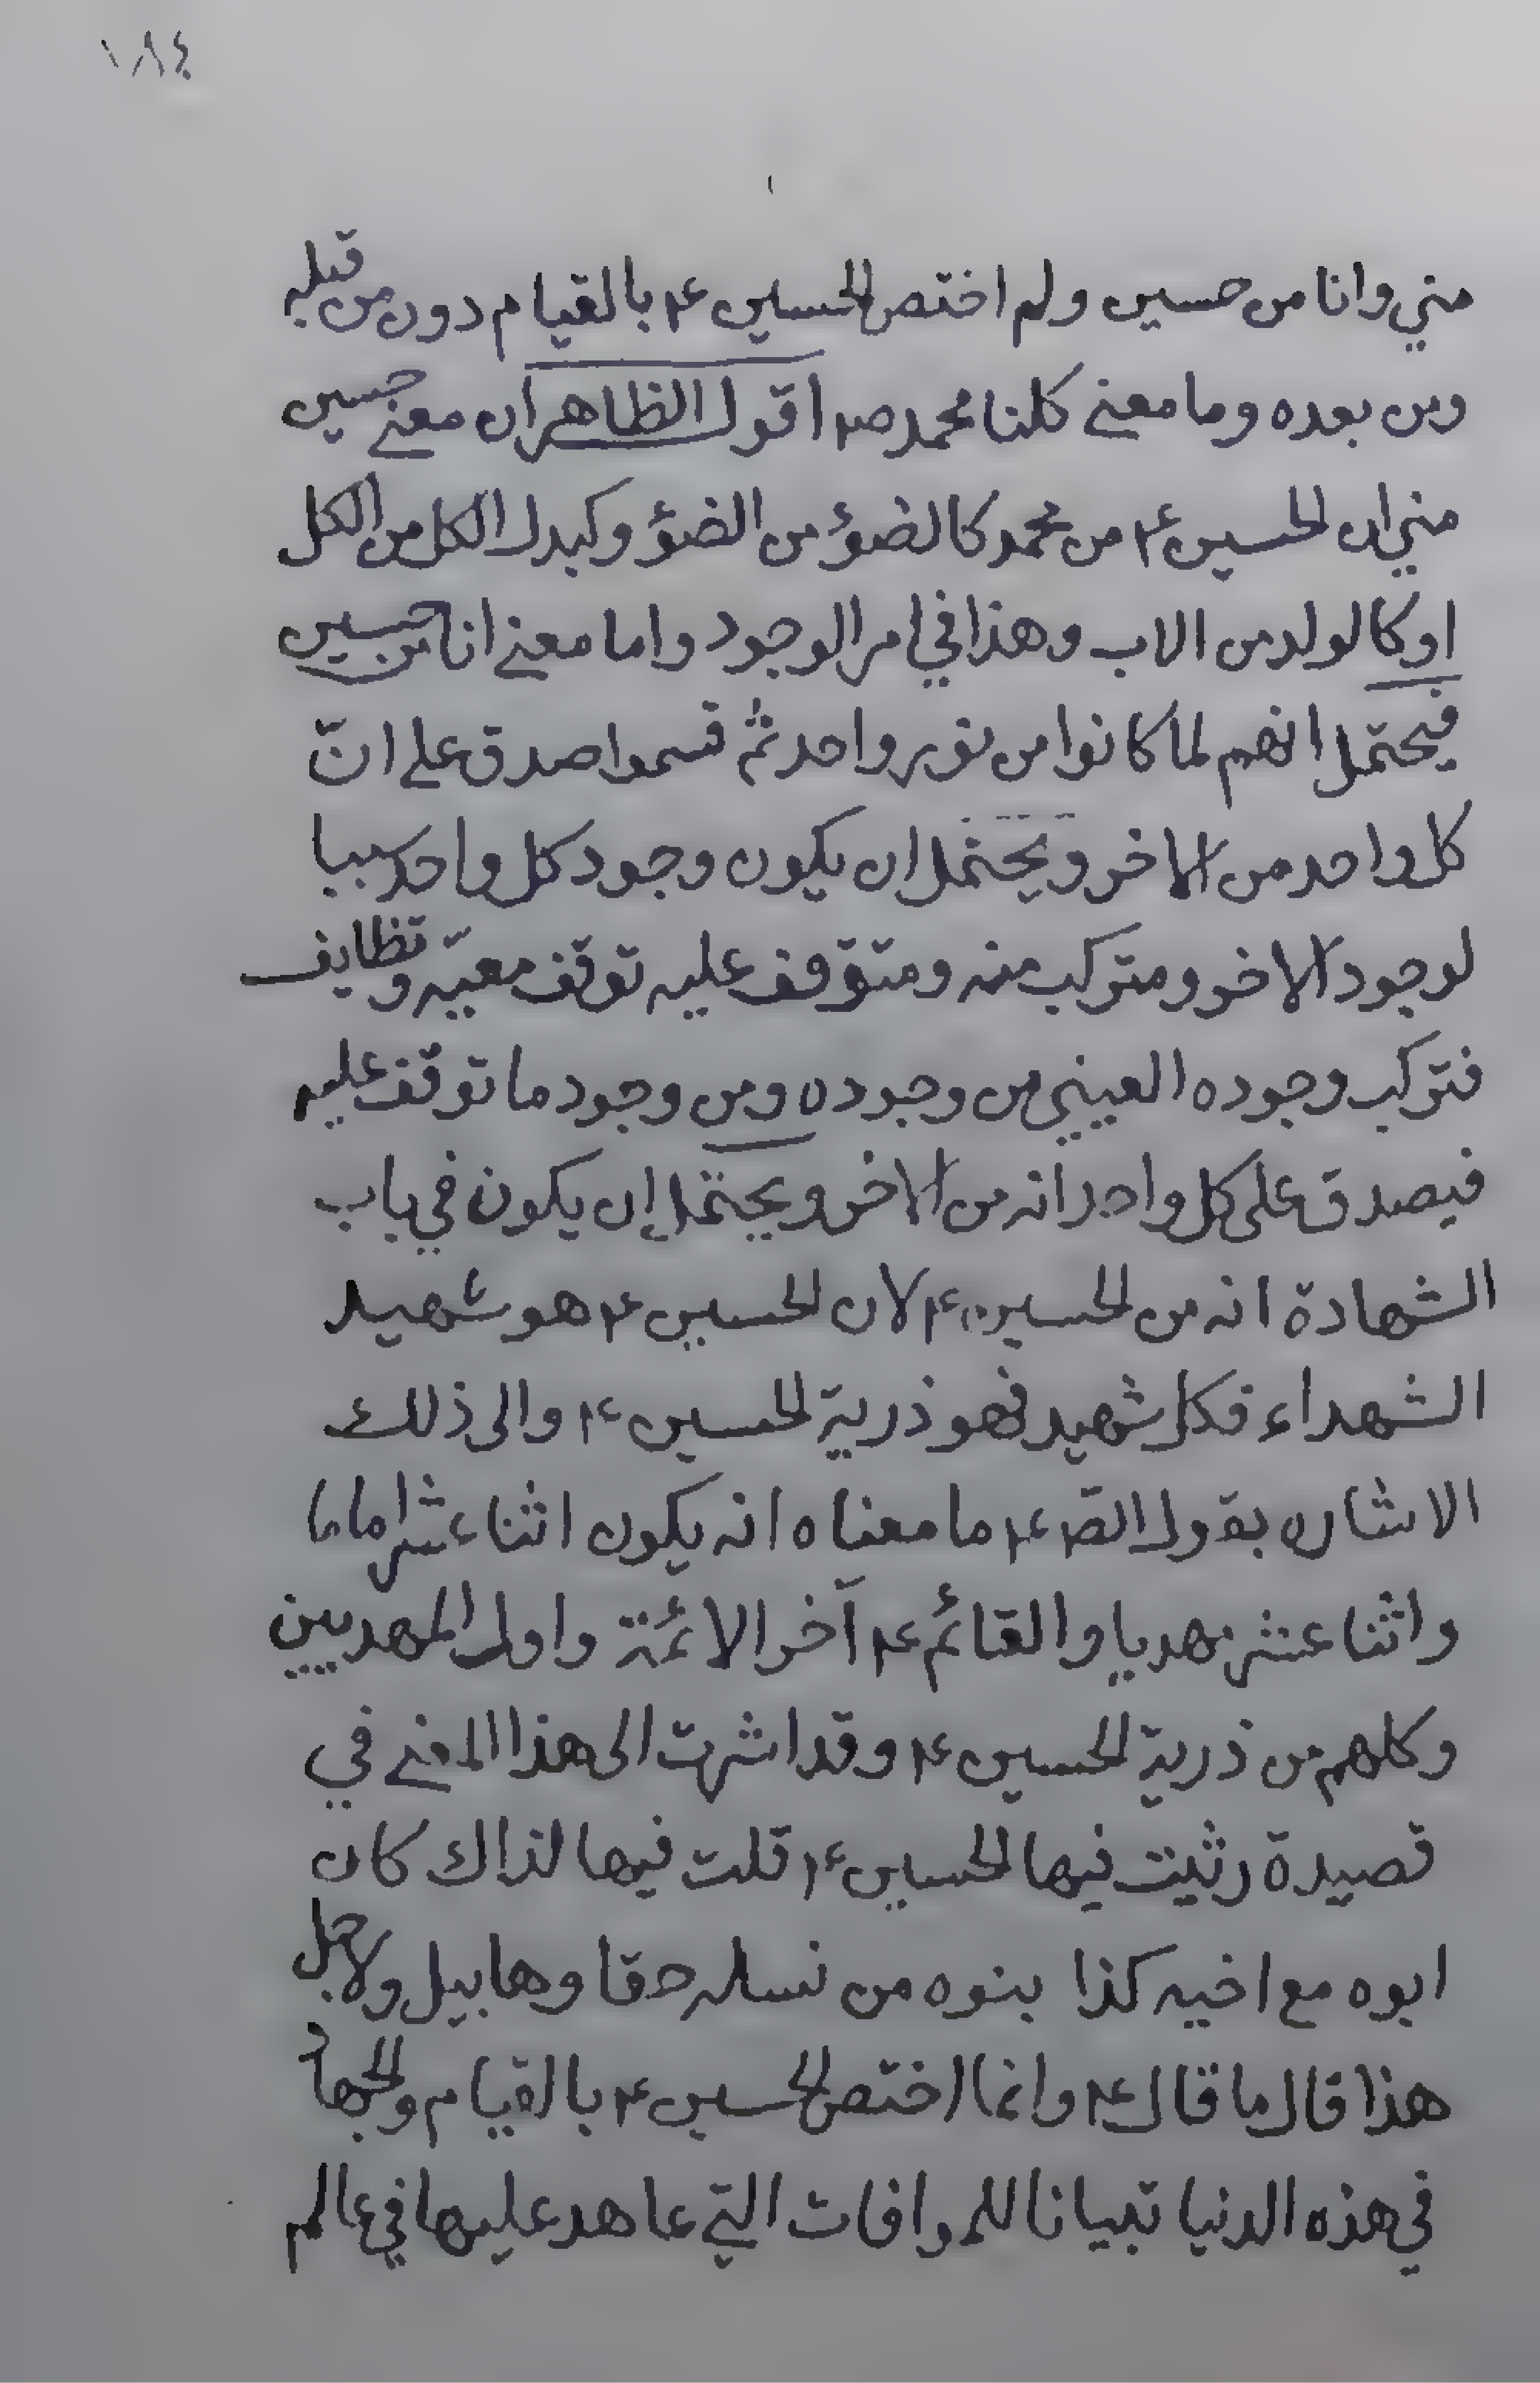 ١٨٤
مني وانا من حسين ولم اختص الحسين ع۴ بالقيام دون من قبله
ومن بعده وما معنى كلنا محمد ص۴ اقول الظاهر ان معنى حسين
مني ان الحسين ع۴ من محمد كالضؤ من الضؤ وكبدل الكل من الكل
اوكالولد من الاب وهذا في امر الوجود واما معنى انا من حسين
فيحتمل انهم لما كانوا من نور واحد ثم قسموا صدق على انّ
كل واحد من الاخر ويحتمل ان يكون وجود كل واحد سببا
لوجود الاخر ومتركب منه ومتوقف عليه توقف معيّه وتظايف
فتركب وجوده العيني من وجوده ومن وجود ما توقف عليه
فيصدق على كل واحد انه من الاخر ويحتمل ان يكون في باب
الشهادة انه من الحسين ع۴ لان الحسين ع۴ هو شهيد
الشهداء فكل شهيد فهو ذرية الحسين ع۴ والى ذلك
الاشاره بقول الصّ ع۴ ما معناه انه يكون اثنا عشر اماما
واثنا عشر مهديا والقائم ع۴ آخر الائمة واول المهديين
وكلهم من ذرية الحسين ع۴ وقد اشرت الى هذا المعنى في
قصيدة رثيت فيها الحسين ع۴ قلت فيها لذاك كان
ابوه مع اخيه كذا بنوه من نسله حقا وهابيل ولاجل
هذا قال ما قال ع۴ وانما اختص الحسين ع۴ بالقيام والجهاد
في هذه الدنيا تبيانا للموافات التي عاهد عليها في عالم